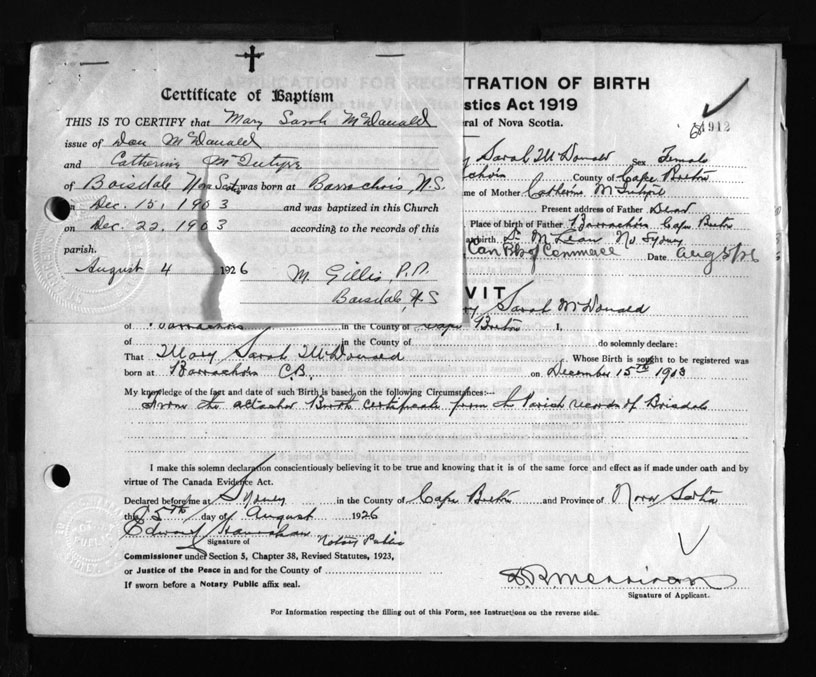 Certificate of Baptism
THIS IS TO CERTIFY that Mary Sarah McDonald
issue of Dan McDonald
and Catherine McIntyre
of Boisdale Nova Scotia was born at Barrachois, N.S.
on Dec. 15, 1903 and was baptized in this Church
on Dec. 22, 1903 according to the records of this
parish.
August 4 1926 M. Gillis, P.P.
Boisdale, N.S
TRATION OF BIRTH
stics Act 1919
ral of Nova Scotia.
1912
y Sarah McDonald Sex Female
chois County of Cape Breton
me of Mother Catherine McIntyre
Present address of Father Dead
Place of birth of Father Barrachois Cape Breton
birth. Dr McLean No Sydney
Can Bk of Commerce Date Aug 5/26
VIT
Sarah McDonald
of Barrachois in the County of Cape Breton I,
of in the County of do solemnly declare:
That Mary Sarah McDonald Whose Birth is sought to be registered was
born at Barrachois C.B. on December 15th 1903
My knowledge of the fact and date of such Birth is based on the following Circumstances:—
From the attached Birth certificate from the Parish records of Boisdale
I make this solemn declaration conscientiously believing it to be true and knowing that it is of the same force and effect as if made under oath and by
virtue of The Canada Evidence Act.
Declared before me at Sydney in the County of Cape Breton and Province of Nova Scotia
this 5th day of August 1926
Edward
Signature of Notary Public
Commissioner under Section 5, Chapter 38, Revised Statutes, 1923,
or Justice of the Peace in and for the County of
If sworn before a Notary Public affix seal.
Signature of Applicant.
For Information respecting the filling out of this Form, see Instructions on the reverse side.